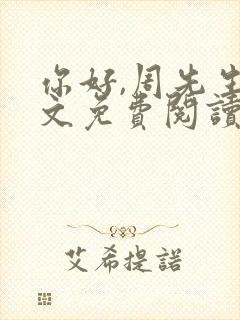 你好,周先生
文免费閱讀
艾希提諾